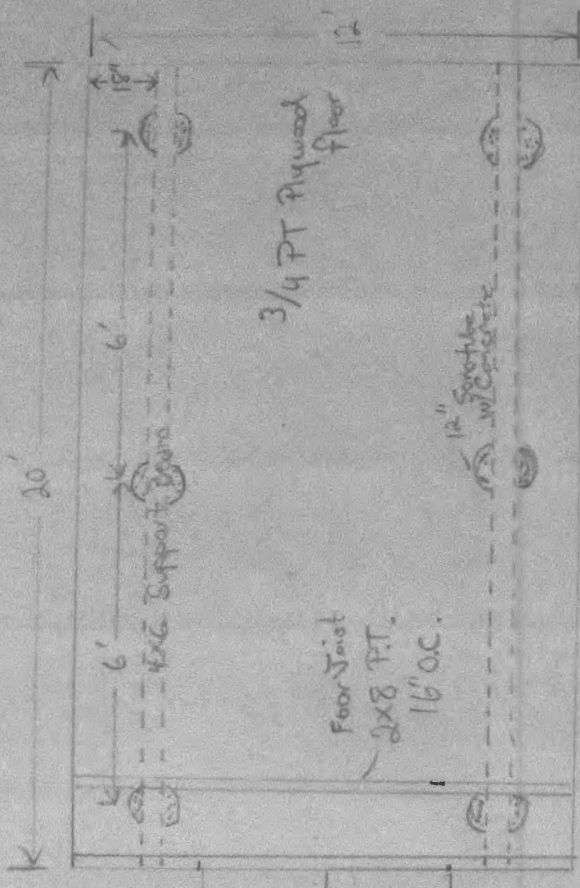 20'
12'
18"
6'
6'
4x6 Support Beam
3/4 PT Plywood
floor
12" Sonotube
w/ Concrete
Foor Joist
2x8 P.T.
16" O.C.